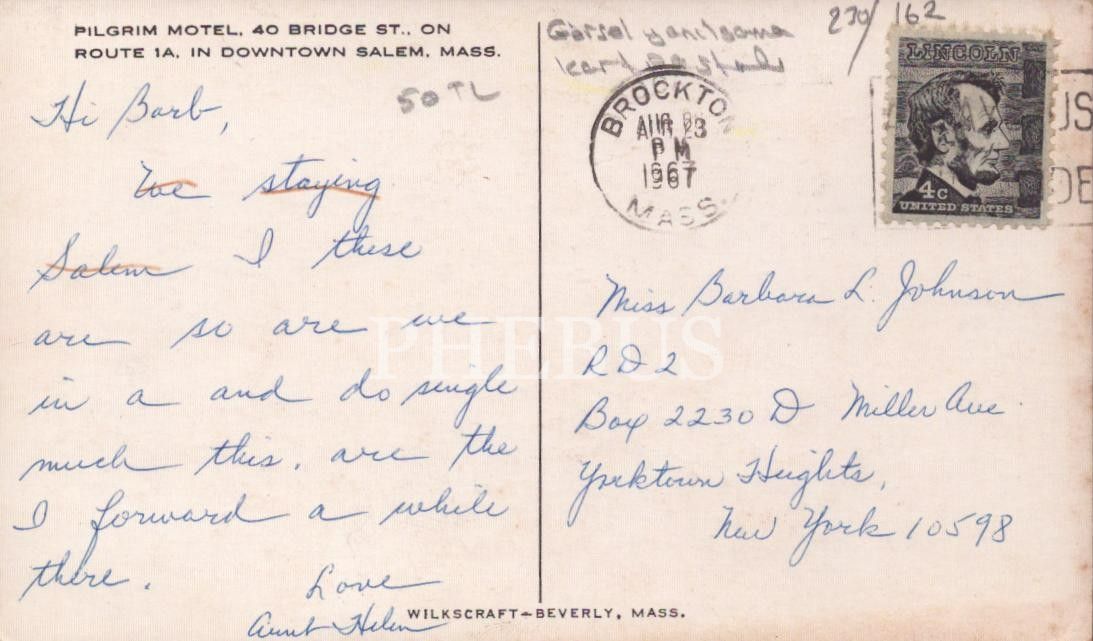 PILGRIM MOTEL, 40 BRIDGE ST., ON
ROUTE 1A, IN DOWNTOWN SALEM, MASS.
230/162
50 TL
Hi Barb,
We staying
Salem I these
are so are we
in a and do single
much this. are the
I forward a while
there.
Love
Aunt Helen
BROCKTON
AUG 23
PM
1967
MASS.
LINCOLN
4c
UNITED STATES
US
DE
Miss Barbara L. Johnson
RD2
Box 2230 D Miller Ave.
Yorktown Heights,
New York 10598
PHEBUS
WILKSCRAFT—BEVERLY, MASS.